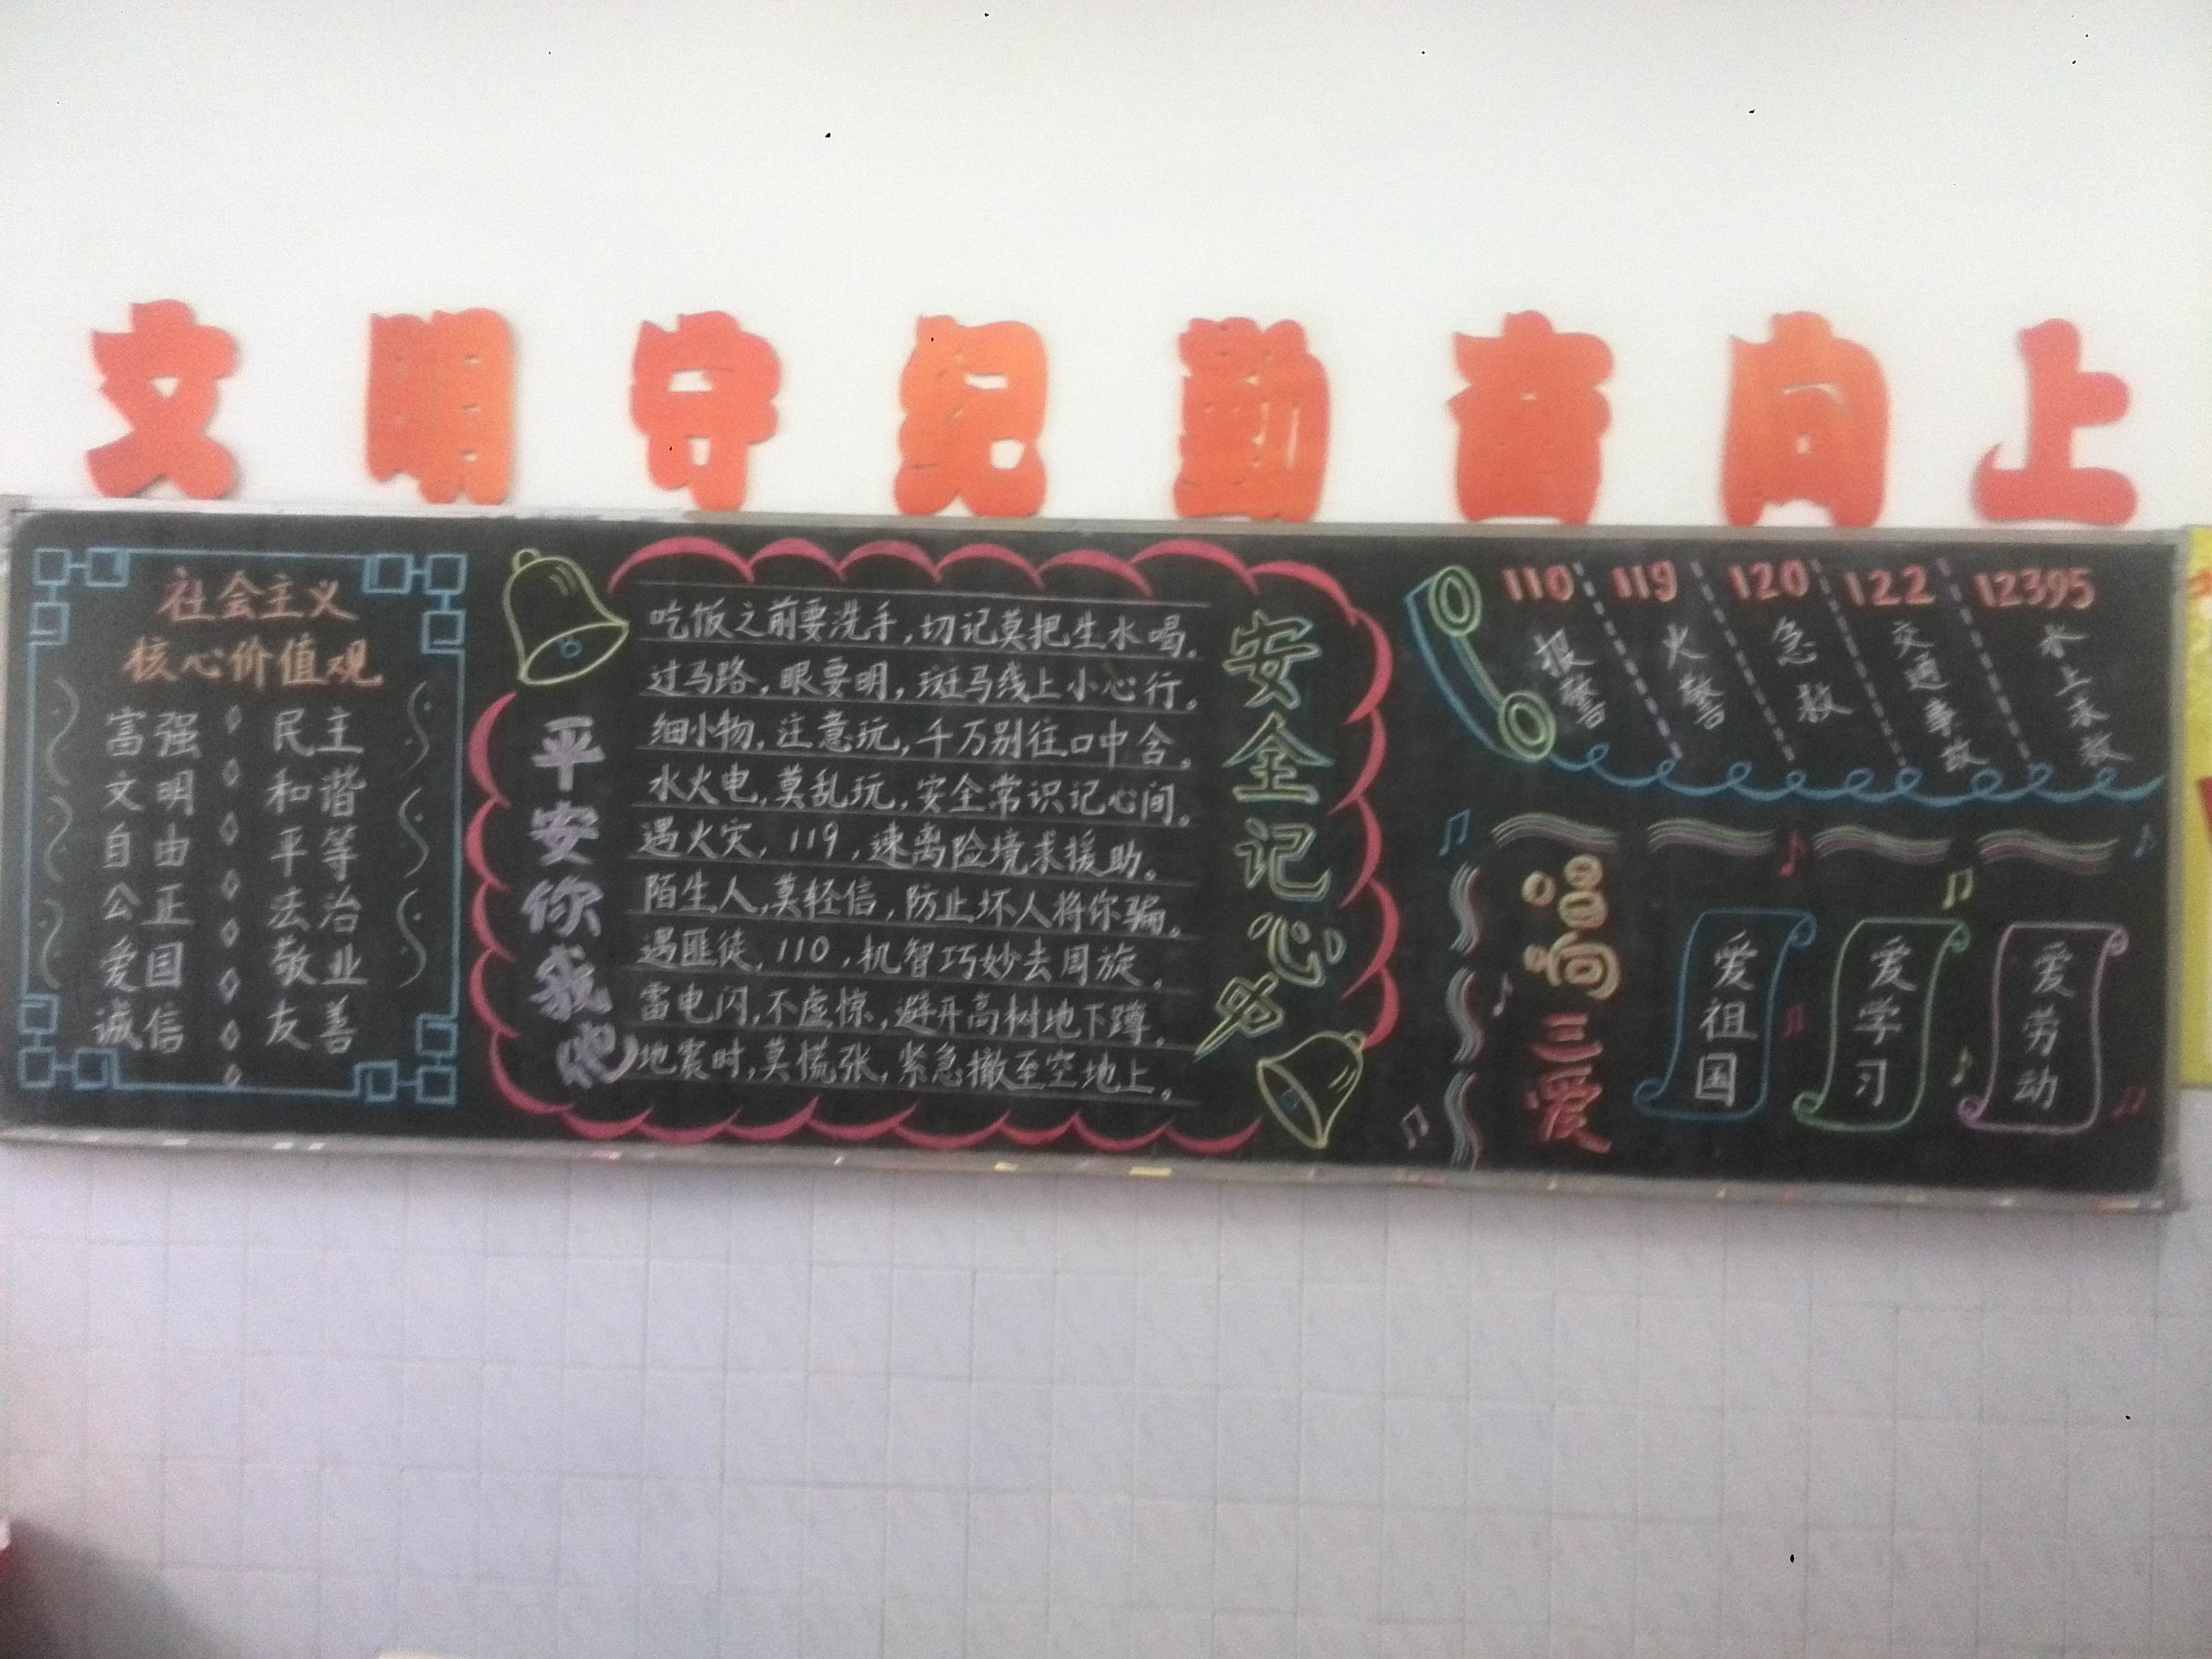 文明守纪勤奋向上
社会主义
核心价值观
富强 民主
文明 和谐
自由 平等
公正 法治
爱国 敬业
诚信 友善
平安你我他
吃饭之前要洗手,切记莫把生水喝。
过马路,眼要明,斑马线上小心行。
细小物,注意玩,千万别往口中含。
水火电,莫乱玩,安全常识记心间。
遇火灾,119,速离险境求援助。
陌生人,莫轻信,防止坏人将你骗。
遇匪徒,110,机智巧妙去周旋。
雷电闪,不虚惊,避开高树地下蹲。
地震时,莫慌张,紧急撤至空地上。
安全记心
110 119 120 122 12395
报警
火警
急救
交通事故
水上求救
唱响三爱
爱祖国
爱学习
爱劳动